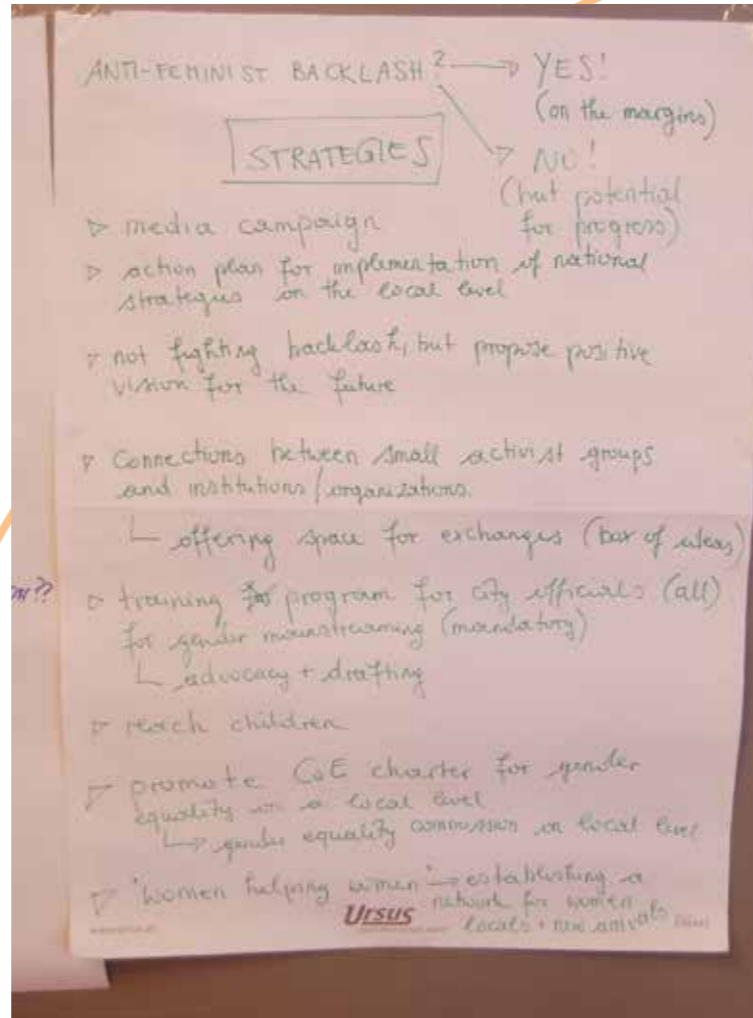 ANTI-FEMINIST BACKLASH? → YES!
(on the margins)
STRATEGIES
→ NO!
(but potential
for progress)
▷ media campaign
▷ action plan for implementation of national
strategies on the local level
▷ not fighting backlash, but propose positive
vision for the future
▷ Connections between small activist groups
and institutions/organizations.
└ offering space for exchanges (bar of ideas)
▷ training program for city officials (all)
for gender mainstreaming (mandatory)
└ advocacy + drafting
▷ reach children
▷ promote CoE charter for gender
equality on a local level
└→ gender equality commission on local level
▷ "women helping women" → establishing a
network for women
locals + new arrivals
Ursus
??